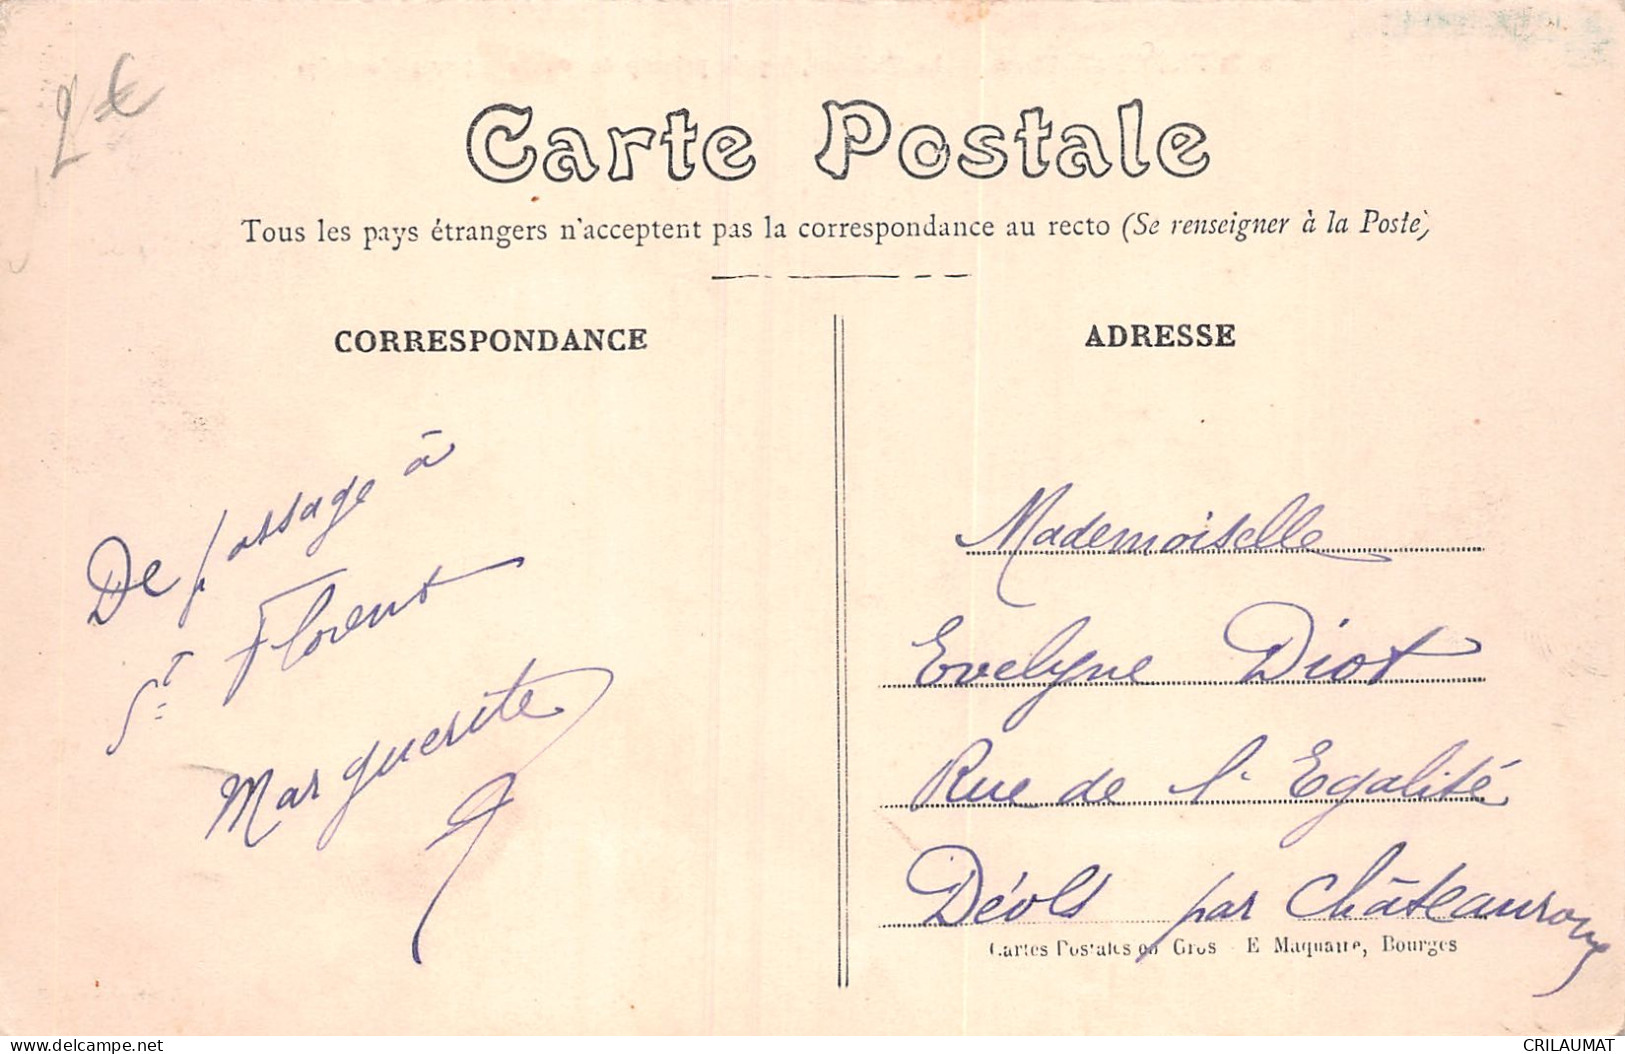 2€
Carte Postale
Tous les pays étrangers n'acceptent pas la correspondance au recto (Se renseigner à la Poste)
CORRESPONDANCE
ADRESSE
De passage à
St Florent
Marguerite
Mademoiselle
Evelyne Diot
Rue de l'Egalité
Déols par Châteauroux
Cartes Postales en Gros - E Maquaire, Bourges
www.delcampe.net
CRILAUMAT